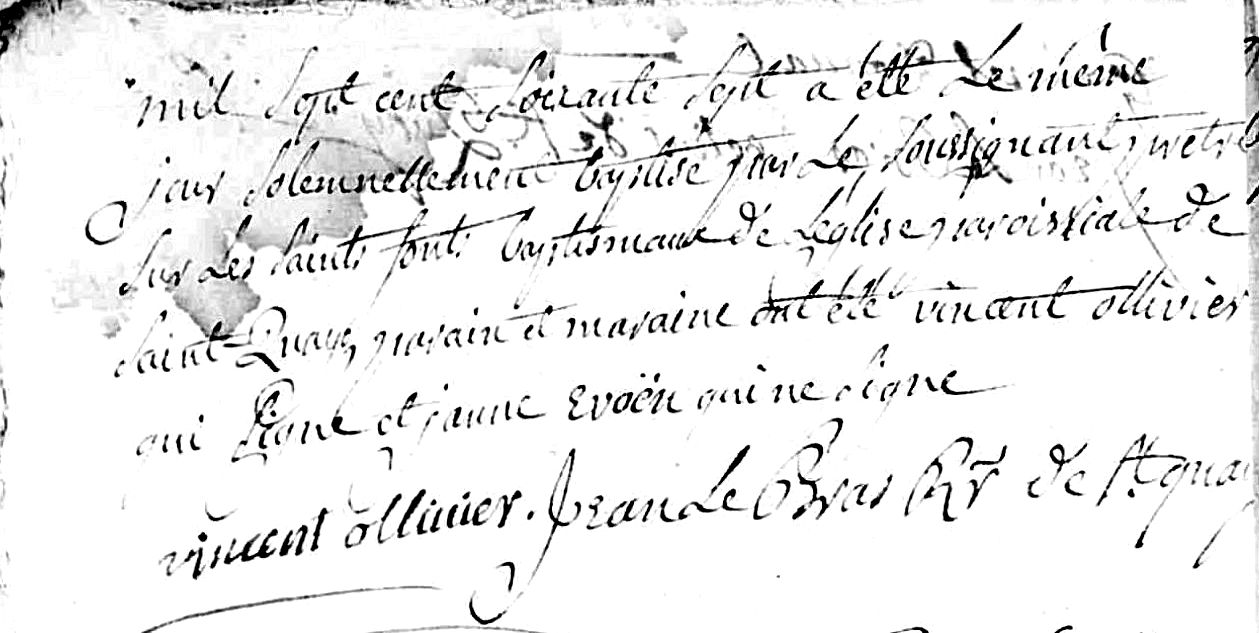 mil sept cent soixante sept a été Le même
jour solemnellement baptisé par Le soussignant pretre
sur Les saints fonts baptismaux de Léglise paroissiale de
saint-Quay, parain et maraine ont été vincent ollivier
qui signe et jeanne Evoën qui ne signe
vincent ollivier. Jean Le Bras Rr de St. quay